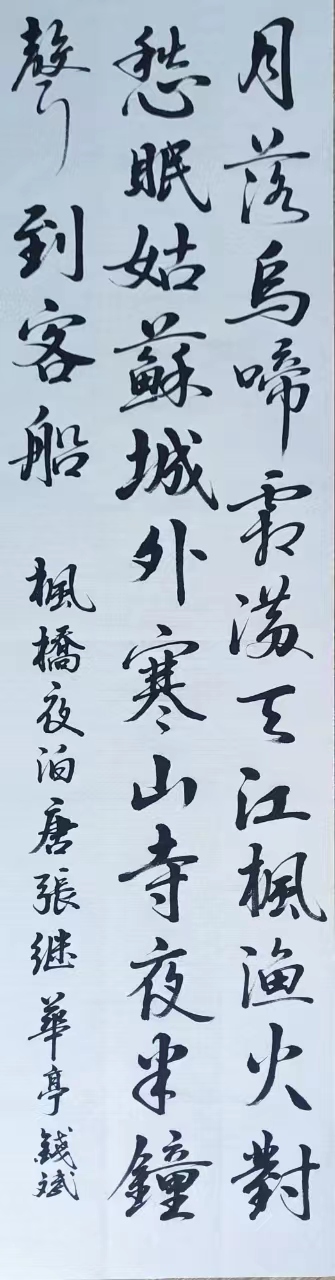 月落烏啼霜滿天江楓漁火對
愁眠姑蘇城外寒山寺夜半鐘
聲到客船
楓橋夜泊唐張继華亭錢斌